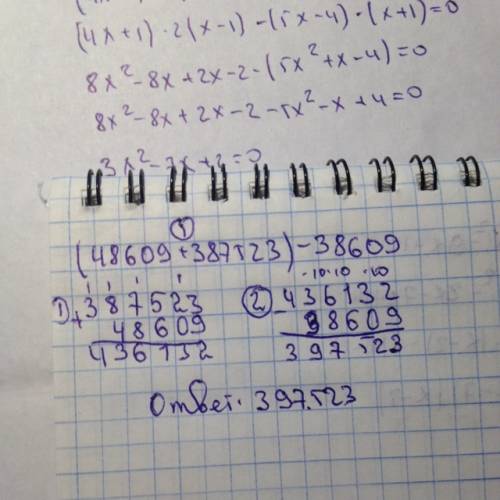 (4x+1)·2(x-1)-(5x-4)·(x+1)=0
8x²-8x+2x-2-(5x²+x-4)=0
8x²-8x+2x-2-5x²-x+4=0
3x²-7x+2=0
1
(48609+387523)-38609
1) +387523
48609
436132
2) -436132
38609
397523
Ответ. 397523